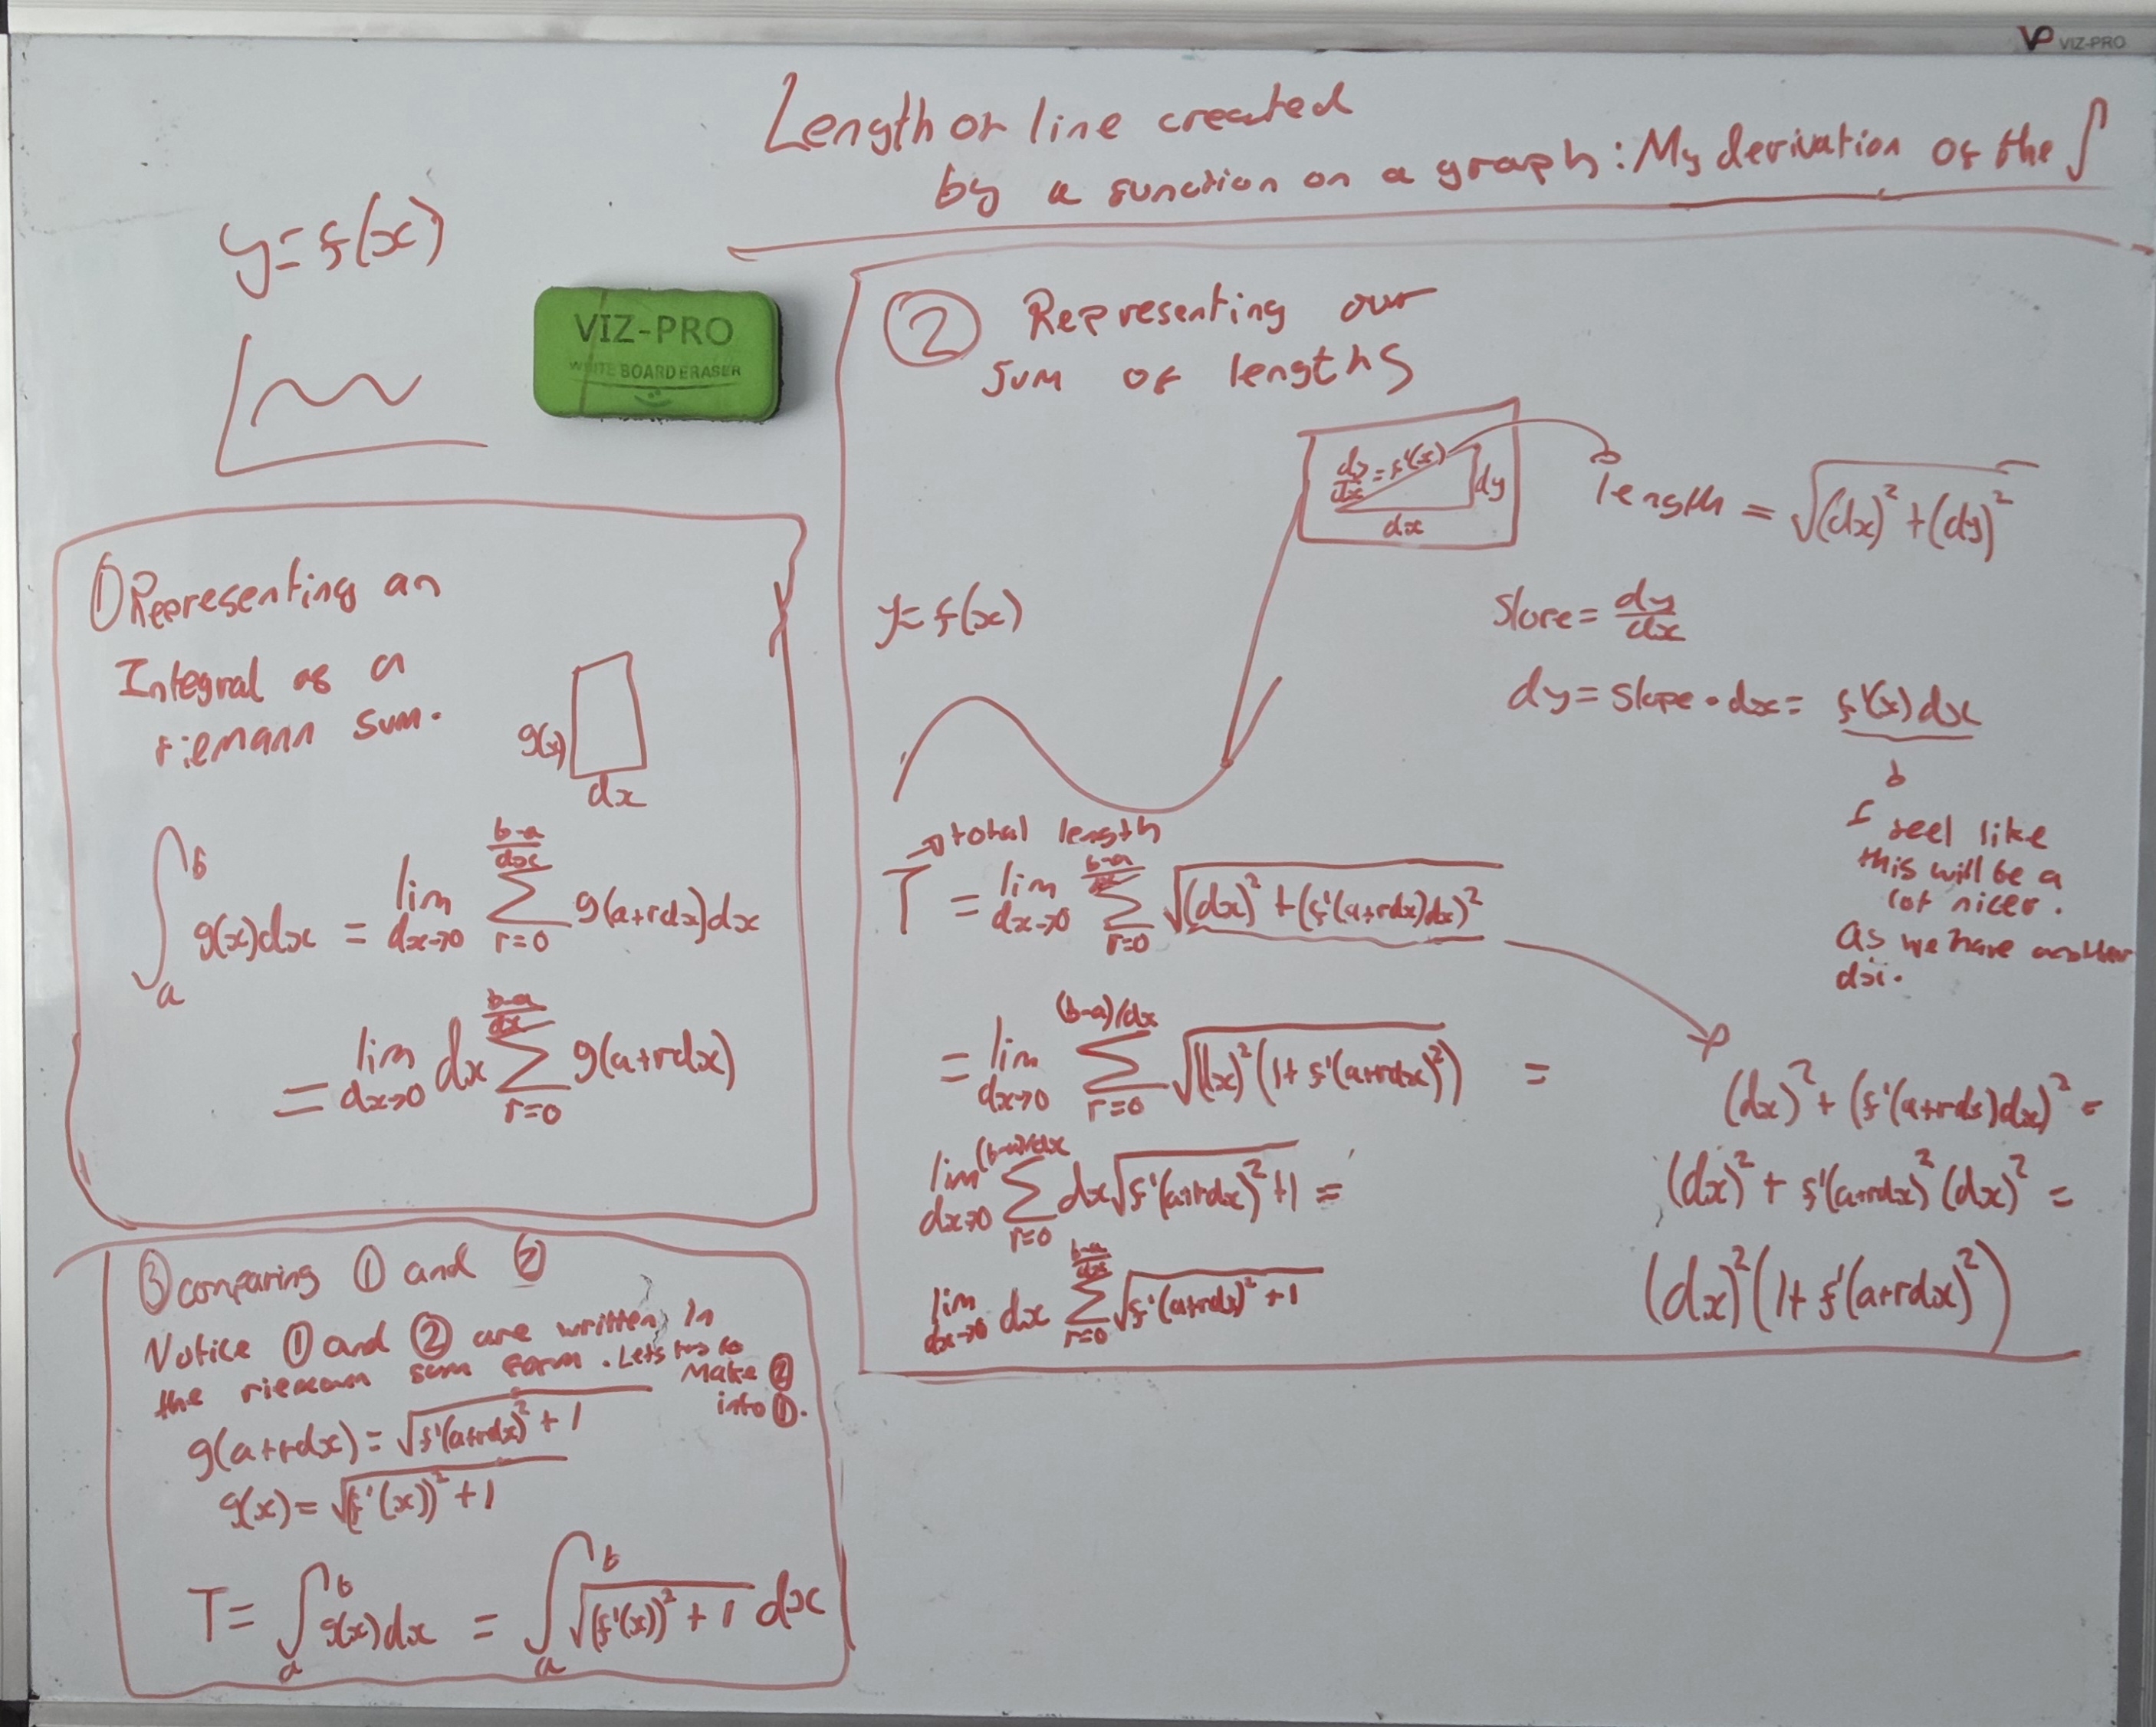 VP VIZ-PRO
Length of line created
by a function on a graph: My derivation of the ∫
y = f(x)
VIZ-PRO
WHITE BOARD ERASER
① Representing an
Integral as a
riemann sum.
g(x)
dx
∫_a^b g(x)dx = lim_{dx→0} Σ_{r=0}^{(b-a)/dx} g(a+rdx)dx
= lim_{dx→0} dx Σ_{r=0}^{(b-a)/dx} g(a+rdx)
② Representing our
sum of lengths
dy/dx = f'(x)
dy
dx
length = √((dx)² + (dy)²)
y = f(x)
slope = dy/dx
dy = slope · dx = f'(x)dx
I feel like
this will be a
lot nicer.
As we have another
dx.
→ total length
T = lim_{dx→0} Σ_{r=0}^{(b-a)/dx} √((dx)² + (f'(a+rdx)dx)²)
= lim_{dx→0} Σ_{r=0}^{(b-a)/dx} √((dx)²(1+f'(a+rdx)²)) =
lim_{dx→0} Σ_{r=0}^{(b-a)/dx} dx√(f'(a+rdx)²+1) =
lim_{dx→0} dx Σ_{r=0}^{(b-a)/dx} √(f'(a+rdx)²+1)
(dx)² + (f'(a+rdx)dx)² =
(dx)² + f'(a+rdx)²(dx)² =
(dx)²(1+f'(a+rdx)²)
③ comparing ① and ②
Notice ① and ② are written in
the riemann sum form. Lets try to
Make ②
into ①.
g(a+rdx) = √(f'(a+rdx)²+1)
g(x) = √((f'(x))²+1)
T = ∫_a^b g(x)dx = ∫_a^b √((f'(x))²+1) dx